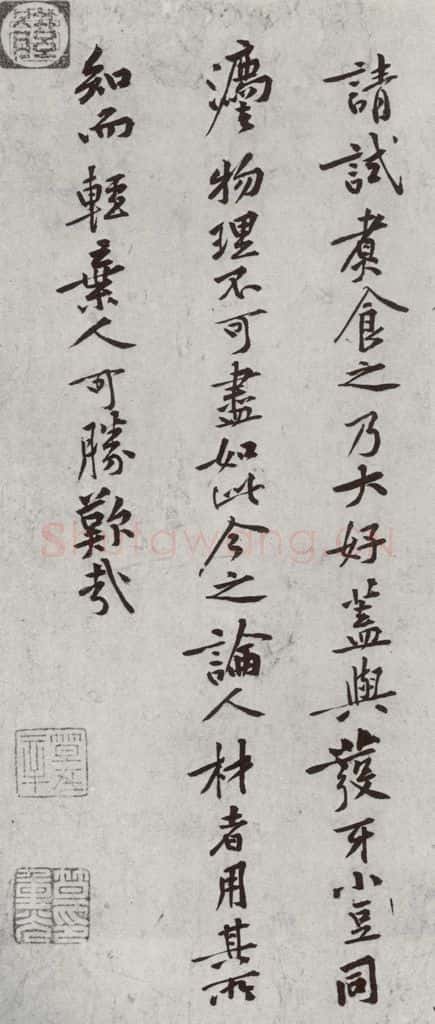 請試煮食之乃大好蓋與發牙小豆同
灋物理不可盡如此今之論人材者用其所
知而輕棄人可勝歎哉
Shufawang.CN